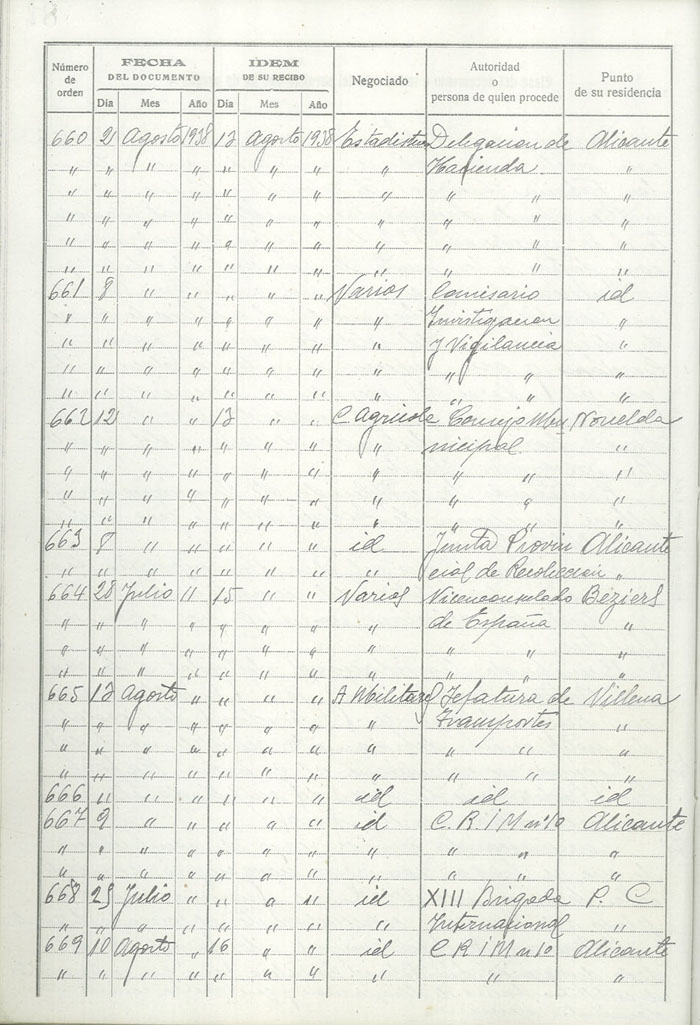 Número de orden | FECHA DEL DOCUMENTO | IDEM DE SU RECIBO | Negociado | Autoridad o persona de quien procede | Punto de su residencia
Dia | Mes | Año | Dia | Mes | Año
660 2 Agosto 1938 12 Agosto 1938 Estadistica Delegacion de Alicante
" " " " " " " " Hacienda "
" " " " " " " " " " "
" " " " " " " " " " "
" " " " " " " " " " "
" " " " " " " " " " "
661 8 " " " " " Varios Comisario id
" " " " " " " " Investigacion "
" " " " " " " " y Vigilancia "
" " " " " " " " " " "
" " " " " " " " " " "
662 12 " " 12 " " C Agricola Consejo Mu Novelda
" " " " " " " " nicipal "
" " " " " " " " " " "
" " " " " " " " " " "
" " " " " " " " " " "
663 8 " " " " " id Junta Provin Alicante
" " " " " " " " cial de Recoleccion "
664 28 Julio " 15 " " Varios Viceconsulado Beziers
" " " " " " " " de España "
" " " " " " " " " " "
" " " " " " " " " " "
665 12 Agosto " " " " A Militares Jefatura de Villena
" " " " " " " " Transportes "
" " " " " " " " " " "
" " " " " " " " " " "
666 " " " " " " id id id
667 9 " " " " " id C.R.I.M nº 10 Alicante
" " " " " " " " " " "
" " " " " " " " " " "
668 25 Julio " " " " id XIII Brigada P. C
" " " " " " " " Internacional "
669 10 Agosto " 16 " " id C R I M nº 10 Alicante
" " " " " " " " " "